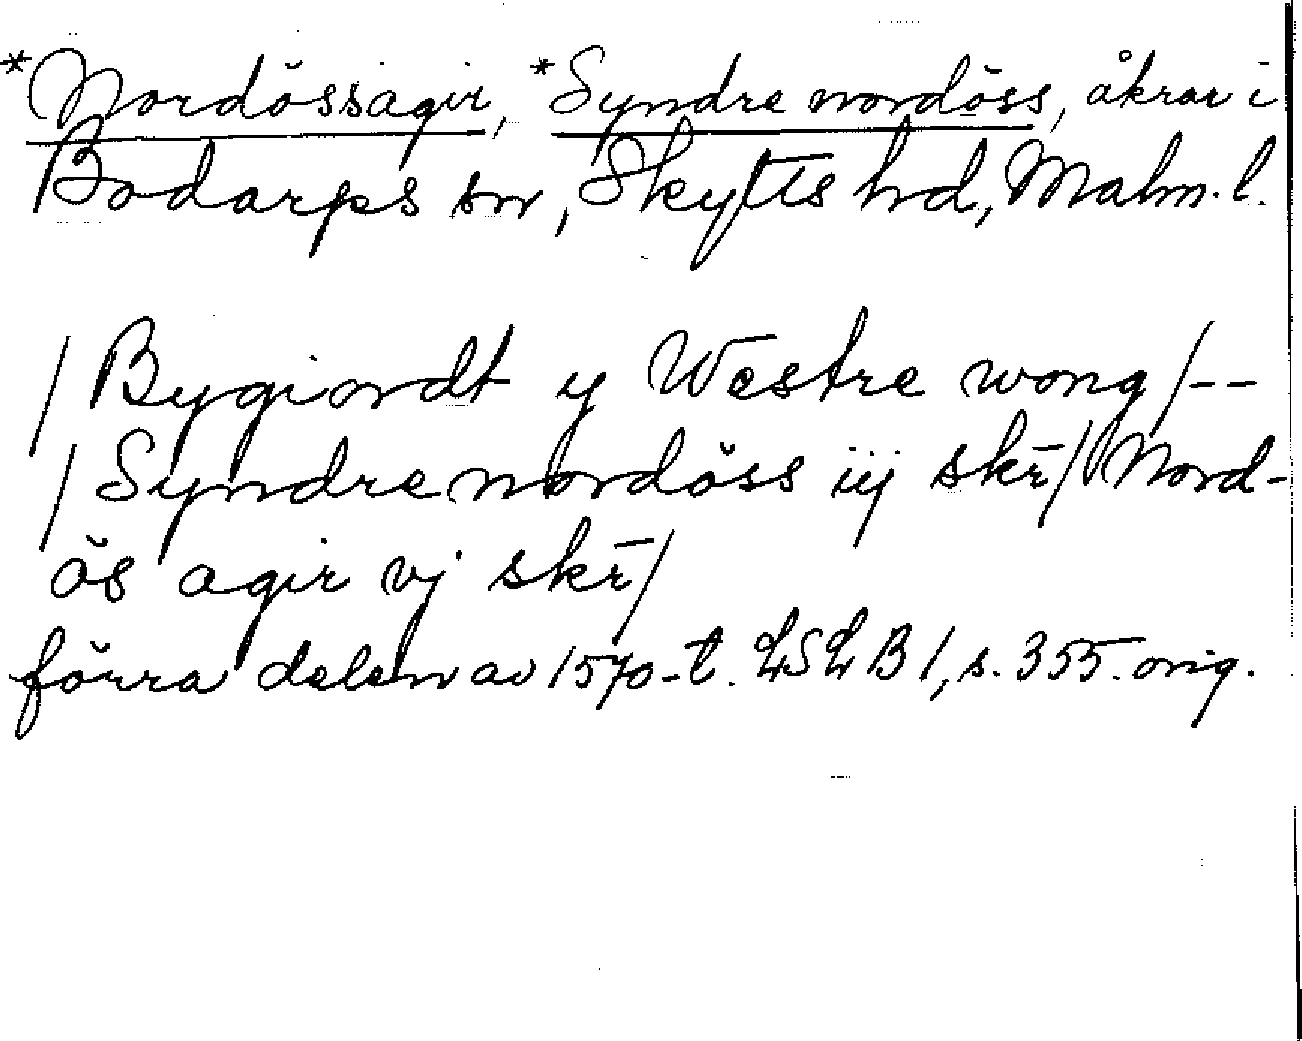 *Nordössagir, *Syndre nordöss, åkrar i
Bodarps sn, Skytts hd, Malm. l.
/Bygiordt y Westre wong/--
/Syndre nordöss iij skr̄/ Nord-
ös agir vj skr̄/
förra delen av 1570-t. LSLB1, s. 355. orig.